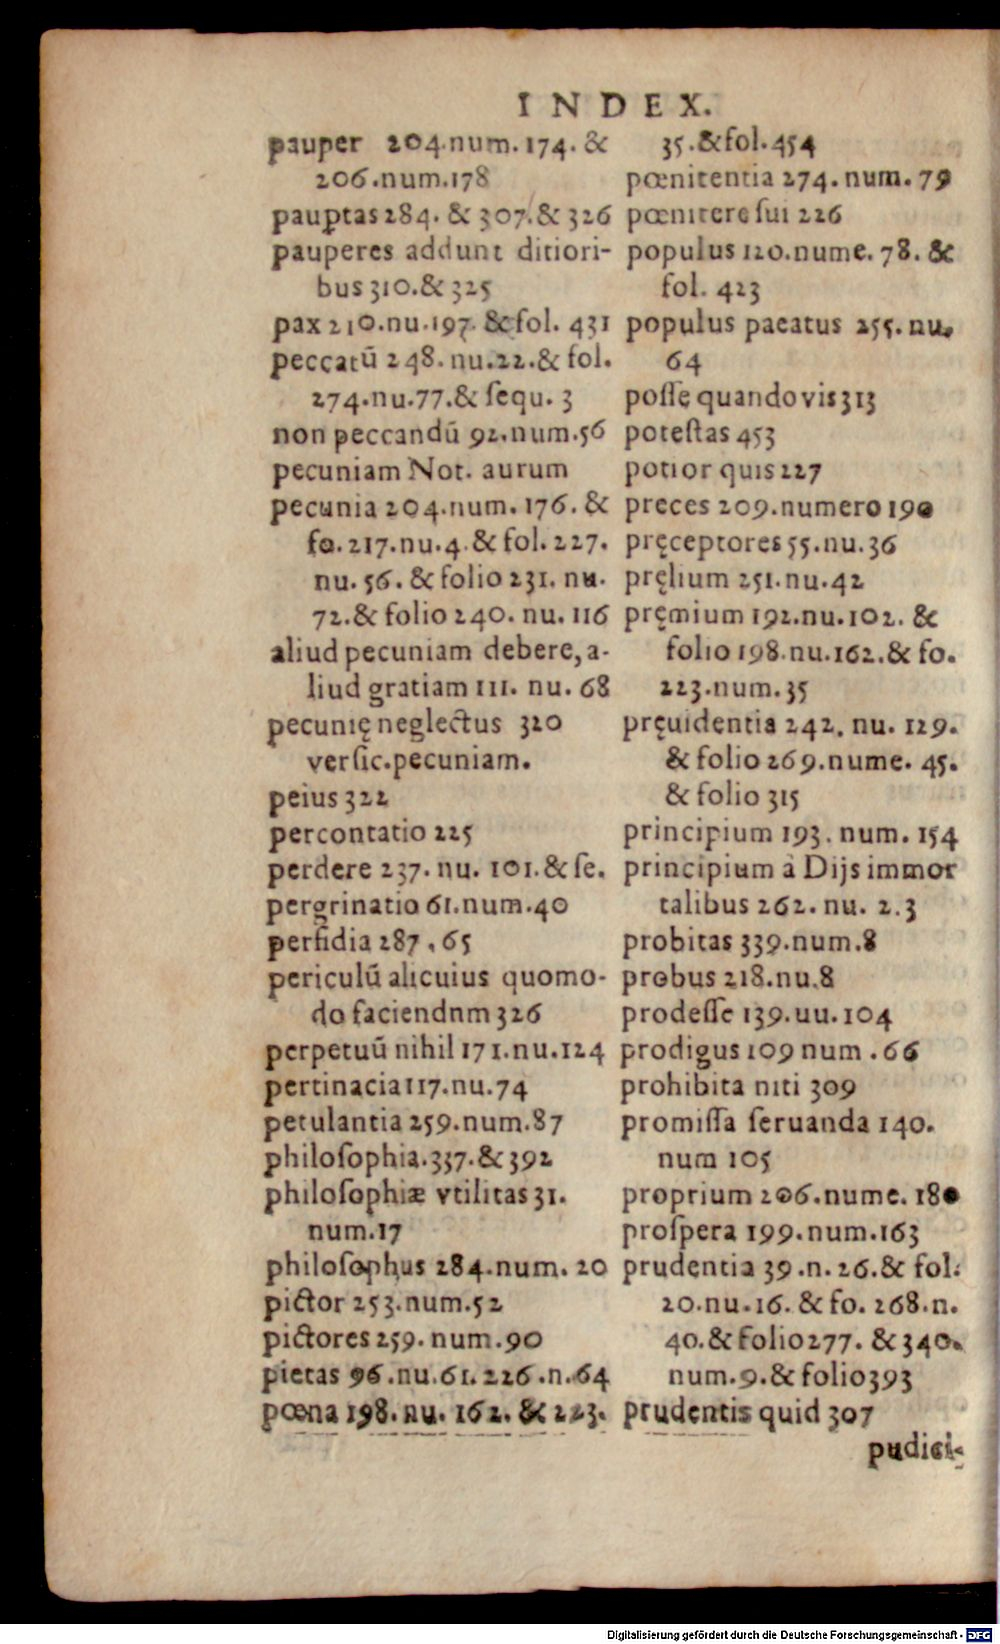 INDEX.
pauper 204.num. 174. &
206.num.178
paup̱tas 284. & 307.& 326
pauperes addunt ditiori-
bus 310.& 325
pax 210.nu.197. & fol. 431
peccatũ 248. nu.22.& fol.
274.nu.77.& ſequ. 3
non peccandũ 92.num.56
pecuniam Not. aurum
pecunia 204.num. 176. &
fo. 217.nu.4. & fol. 227.
nu. 56. & folio 231. nu.
72.& folio 240. nu. 116
aliud pecuniam debere, a-
liud gratiam 111. nu. 68
pecunię neglectus 320
verſic.pecuniam.
peius 322
percontatio 225
perdere 237. nu. 101.& ſe.
pergrinatio 61.num.40
perfidia 287 . 65
periculũ alicuius quomo-
do faciendnm 326
perpetuũ nihil 171.nu.124
pertinacia 117.nu.74
petulantia 259.num.87
philoſophia.337.& 392
philoſophiæ vtilitas 31.
num.17
philoſophus 284.num. 20
pictor 253.num.52
pictores 259. num.90
pietas 96.nu.61.226.n.64
pœna 198. nu. 162. & 223.
35.& fol.454
pœnitentia 274. num. 79
pœnitere ſui 226
populus 120.nume. 78. &
fol. 423
populus pacatus 255. nu.
64
poſſe quando vis 313
poteſtas 453
potior quis 227
preces 209.numero 190
pręceptores 55.nu.36
pręlium 251.nu.42
pręmium 192.nu.102. &
folio 198.nu.162.& fo.
223.num.35
pręuidentia 242. nu. 129.
& folio 269.nume. 45.
& folio 315
principium 193. num. 154
principium à Dijs immor
talibus 262. nu. 2.3
probitas 339.num.8
probus 218.nu.8
prodeſſe 139.uu.104
prodigus 109 num .66
prohibita niti 309
promiſſa ſeruanda 140.
num 105
proprium 206.nume. 180
proſpera 199.num.163
prudentia 39.n. 26.& fol.
20.nu.16. & fo. 268.n.
40.& folio 277. & 340.
num.9.& folio 393
prudentis quid 307
pudici-
Digitalisierung gefördert durch die Deutsche Forschungsgemeinschaft - DFG